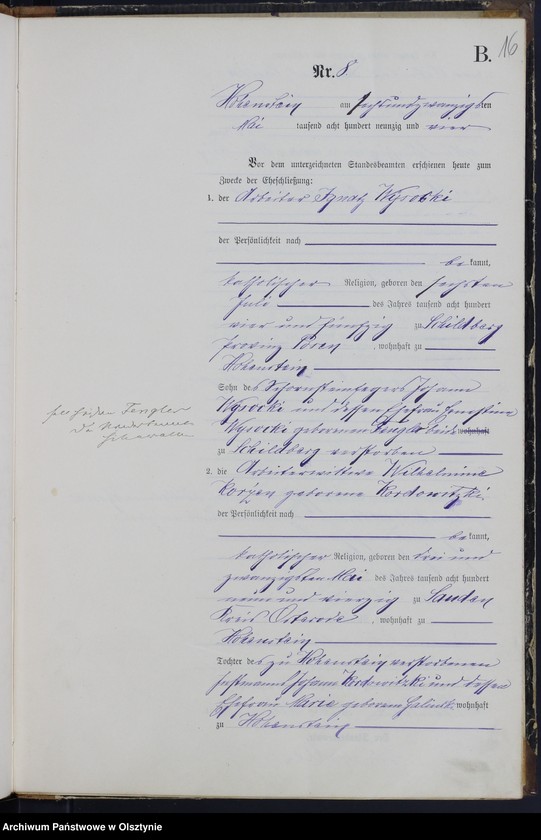 B. 16
Nr. 8.
Hohenstein am sechsundzwanzigsten
Mai tausend acht hundert neunzig und vier
Vor dem unterzeichneten Standesbeamten erschienen heute zum
Zwecke der Eheschließung:
1. der Arbeiter Ignatz Wysocki
der Persönlichkeit nach
bekannt,
katholischer Religion, geboren den sechsten
Juli des Jahres tausend acht hundert
vier und fünfzig zu Schildberg
Provinz Posen, wohnhaft zu
Hohenstein
Sohn des Schornsteinfegers Johann
Wysocki und dessen Ehefrau Ernestine
Wysocki geborenen Tengler beide wohnhaft
zu Schildberg verstorben
2. die Arbeiterwittwe Wilhelmine
geborene Kordowitzki
der Persönlichkeit nach
bekannt,
katholischer Religion, geboren den drei und
zwanzigsten Mai des Jahres tausend acht hundert
neun und vierzig zu
Kreis Osterode, wohnhaft zu
Hohenstein
Tochter des zu Hohenstein verstorbenen
Johann Kordowitzki und dessen
Ehefrau Marie geborenen wohnhaft
zu Hohenstein
Tengler
Der Standesbeamte
Archiwum Państwowe w Olsztynie